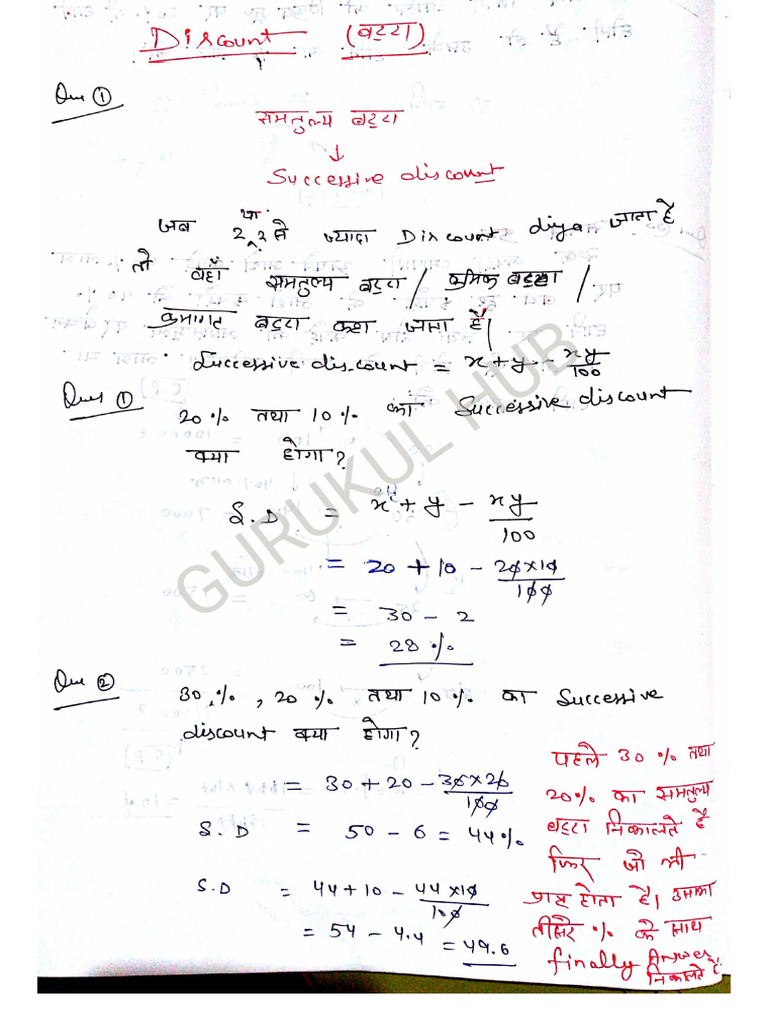 Discount (बट्टा)
Que ①
समतुल्य बट्टा
↓
Successive discount
जब 2 या 2 से ज्यादा Discount diya जाता है
तो वहाँ समतुल्य बट्टा / क्रमिक बट्टा /
क्रमागत बट्टा कहा जाता है।
Successive discount = x + y - xy/100
Que ①
20% तथा 10% का Successive discount
क्या होगा?
S.D = x + y - xy/100
= 20 + 10 - 20×10/100
= 30 - 2
= 28%
Que ②
30%, 20% तथा 10% का Successive
discount क्या होगा?
= 30 + 20 - 30×20/100
S.D = 50 - 6 = 44%
S.D = 44 + 10 - 44×10/100
= 54 - 4.4 = 49.6
पहले 30% तथा
20% का समतुल्य
बट्टा निकालते है
फिर जो भी
प्राप्त होता है। उसका
तीसरे % के साथ
finally Answer
निकालते है
GURUKUL HUB